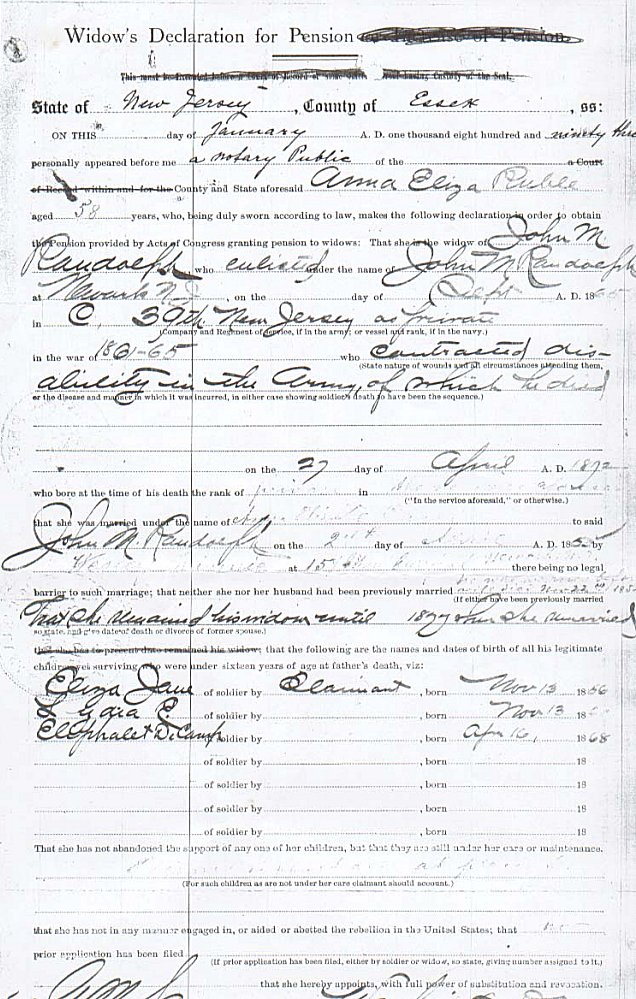 Widow's Declaration for Pension
This must be Executed before a Court of Record or some Officer
State of New Jersey, County of Essex, ss:
ON THIS day of January A. D. one thousand eight hundred and ninety three
personally appeared before me a notary Public of the a Court
of Record within and for the County and State aforesaid Anna Eliza Ruble
aged 58 years, who, being duly sworn according to law, makes the following declaration in order to obtain
the Pension provided by Acts of Congress granting pension to widows: That she is the widow of John M
Randolph who enlisted under the name of John M Randolph
at Newark N J, on the day of Sept A. D. 186
in C, 39th New Jersey as private
(Company and Regiment of service, if in the army; or vessel and rank, if in the navy.)
in the war of 1861-65 who contracted dis-
(State nature of wounds and all circumstances attending them,
ability in the Army, of which he died
or the disease and manner in which it was incurred, in either case showing soldier's death to have been the sequence.)
on the 27 day of April A. D. 1872
who bore at the time of his death the rank of in
("In the service aforesaid," or otherwise.)
that she was married under the name of to said
John M Randolph on the day of A. D. 185 by
at there being no legal
barrier to such marriage; that neither she nor her husband had been previously married
(If either have been previously married
That she remained his widow until 1877 when she remarried
so state, and give date of death or divorce of former spouse.)
that she has to present date remained his widow; that the following are the names and dates of birth of all his legitimate
children yet surviving who were under sixteen years of age at father's death, viz:
Eliza Jane of soldier by Claimant, born Nov 13 1856
Lydia C. of soldier by , born Nov 13 18
Eliphalet D. Camp of soldier by , born Apr 16, 1868
of soldier by , born 18
of soldier by , born 18
of soldier by , born 18
of soldier by , born 18
That she has not abandoned the support of any one of her children, but that they are still under her care or maintenance.
(For such children as are not under her care claimant should account.)
that she has not in any manner engaged in, or aided or abetted the rebellion in the United States; that no
prior application has been filed
(If prior application has been filed, either by soldier or widow, so state, giving number assigned to it.)
that she hereby appoints, with full power of substitution and revocation.